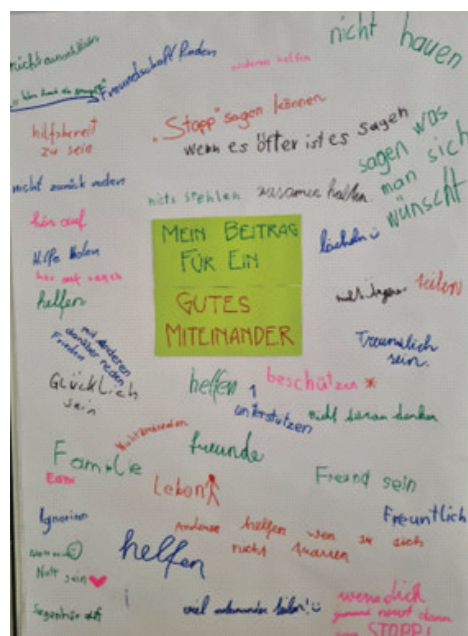 nicht hauen
Freundschaft finden
anderen helfen
hilfsbereit
zu sein
"Stopp" sagen können
wenn es öfter ist es sagen
sagen was
man sich
wünscht
nicht zurück reden
nits stehlen
zusamen halten
hör auf
Hilfe holen
hör auf sagen
helfen
MEIN BEITRAG
FÜR EIN
GUTES
MITEINANDER
lächeln
teilen
mit anderen
darüber reden
Frieden
Freundlich
sein.
Glücklich
sein
helfen
beschützen
unterstützen
nicht daran denken
freunde
Familie
Leben
Freund sein
Ignorien
Freuntlich
Anderen helfen wen sie sich
nicht trauen
helfen
Nett sein
wenn dich
jemand nervt dann
STOPP!